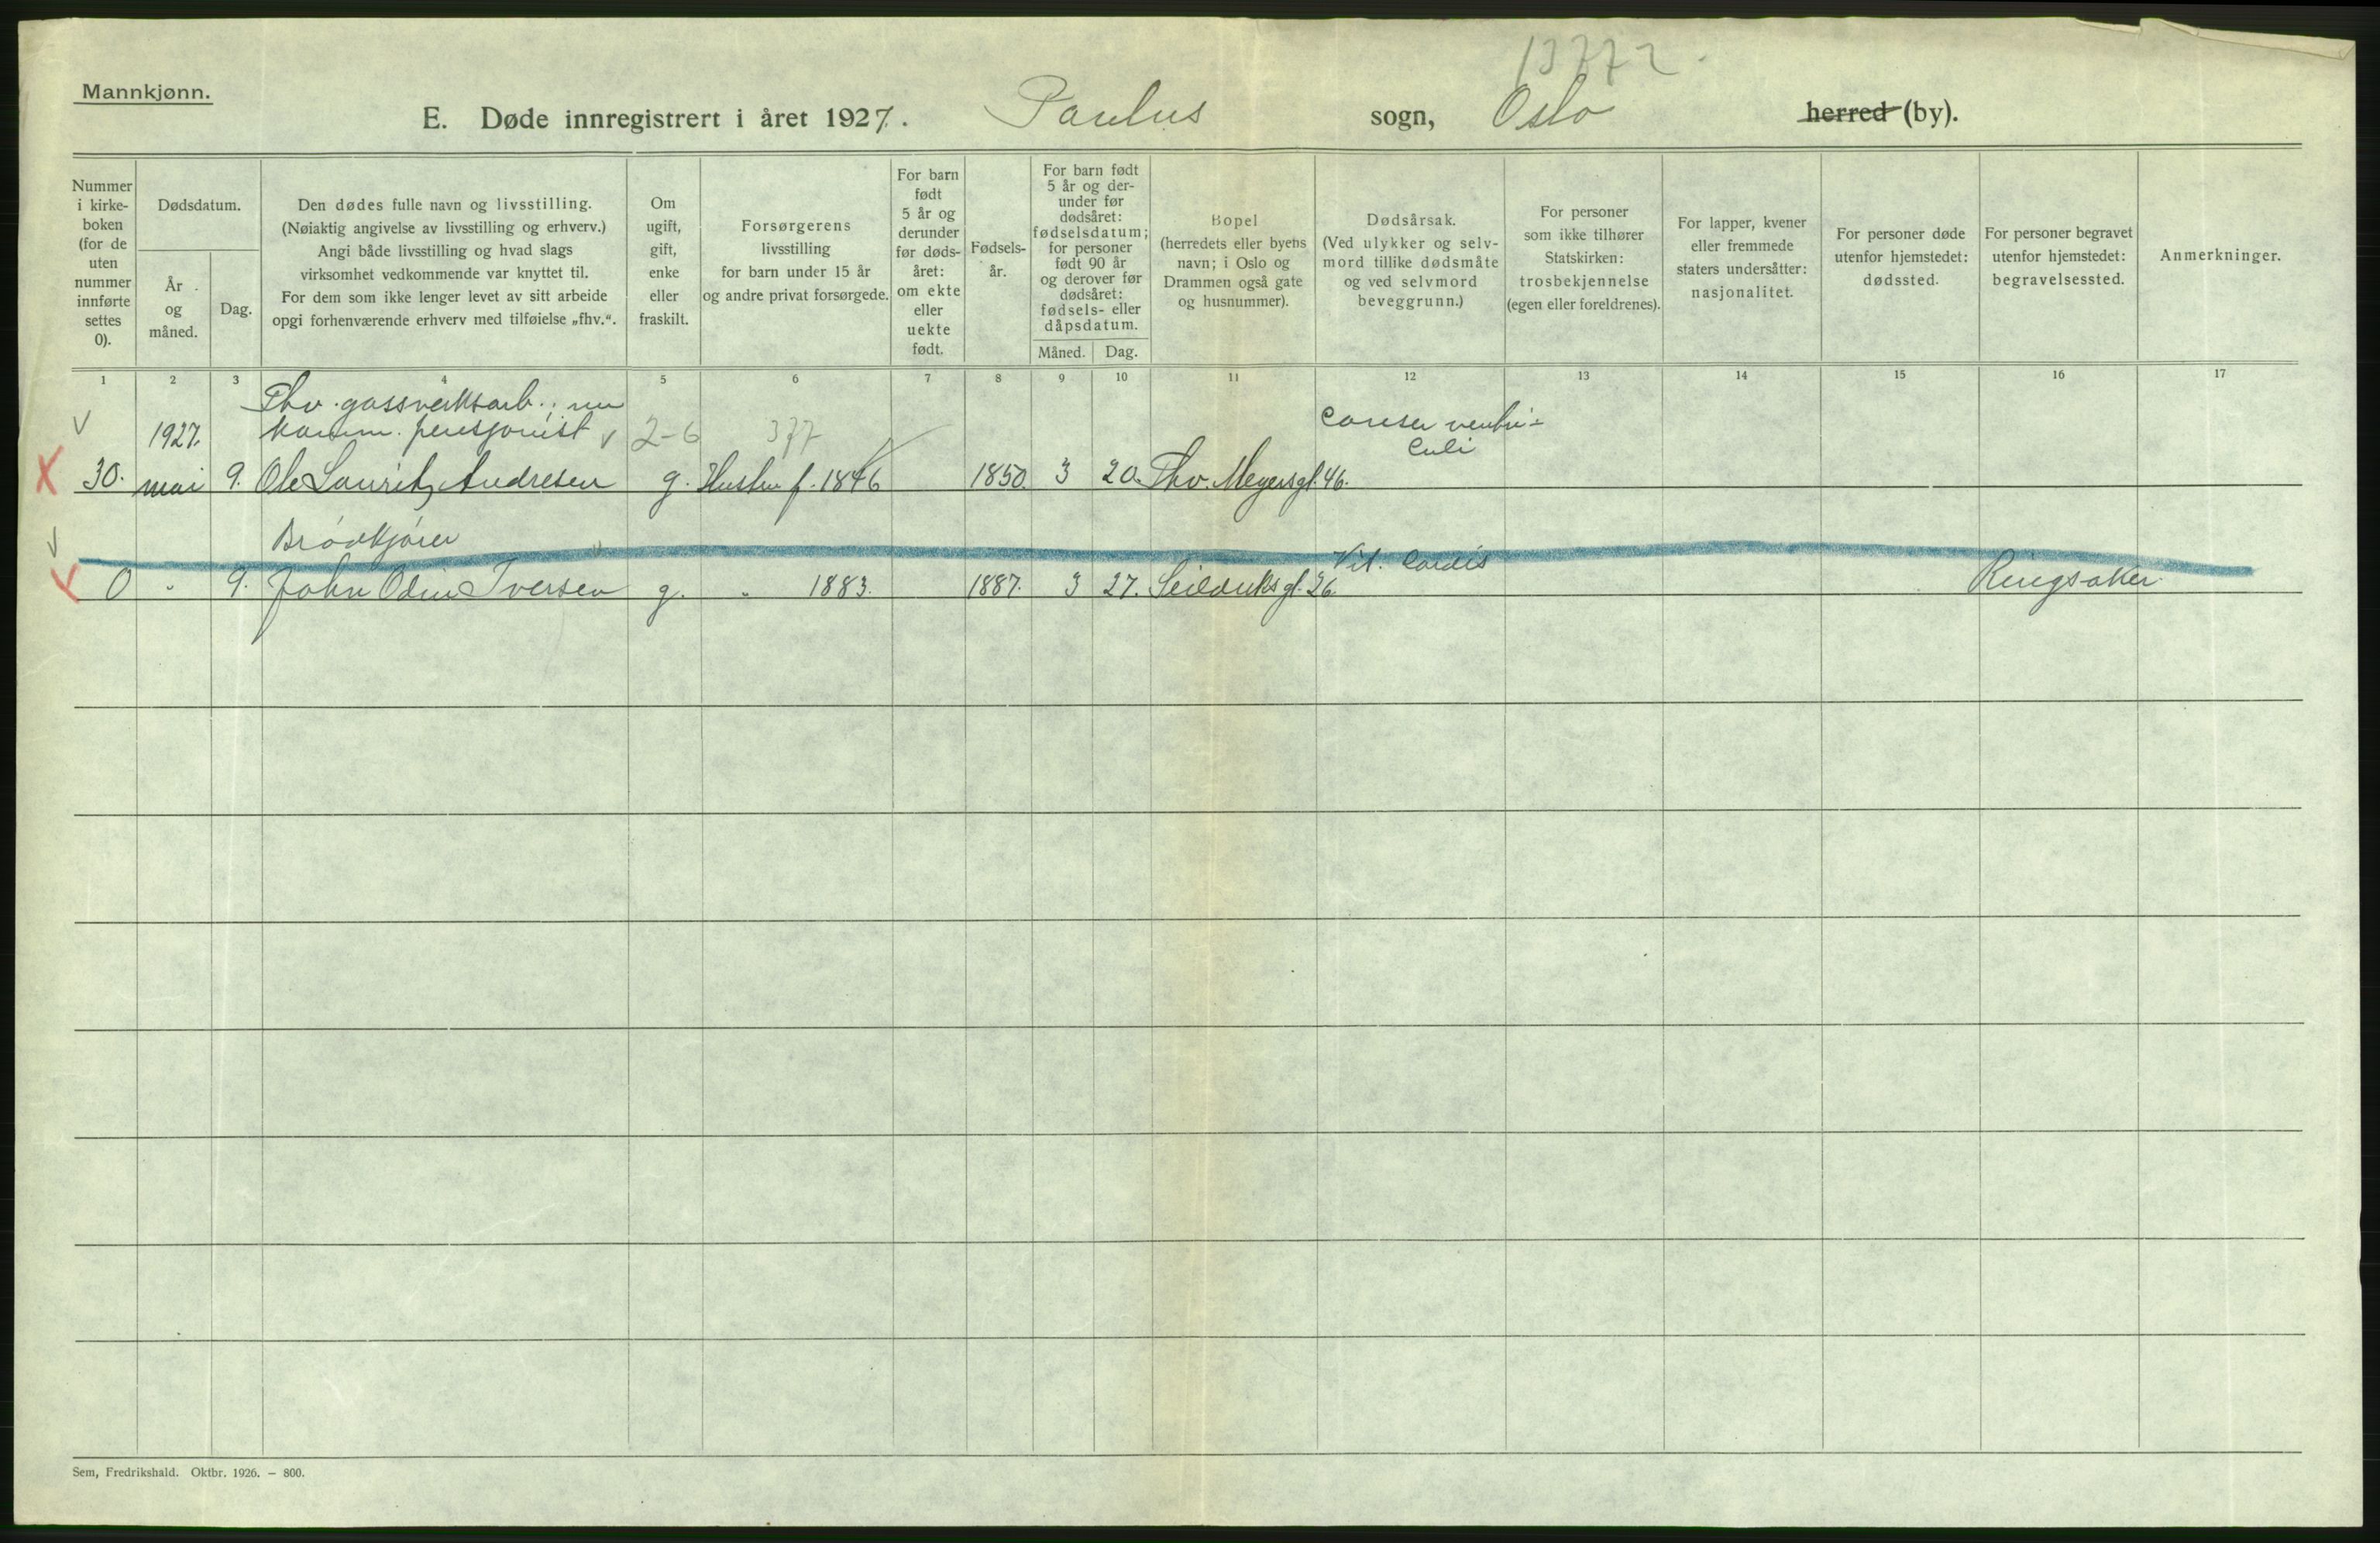 13772.
Mannkjønn.
E. Døde innregistrert i året 1927. Paulus sogn, Oslo herred (by).
Nummer i kirke-boken (for de uten nummer innførte settes 0).
Dødsdatum.
År og måned.
Dag.
Den dødes fulle navn og livsstilling.
(Nøiaktig angivelse av livsstilling og erhverv.)
Angi både livsstilling og hvad slags
virksomhet vedkommende var knyttet til.
For dem som ikke lenger levet av sitt arbeide
opgi forhenværende erhverv med tilføielse „fhv.“.
Om
ugift,
gift,
enke
eller
fraskilt.
Forsørgerens
livsstilling
for barn under 15 år
og andre privat forsørgede.
For barn
født
5 år og
derunder
før døds-
året:
om ekte
eller
uekte
født.
Fødsels-
år.
For barn født
5 år og der-
under før
dødsåret:
fødselsdatum;
for personer
født 90 år
og derover før
dødsåret:
fødsels- eller
dåpsdatum.
Måned. Dag.
Bopel
(herredets eller byens
navn; i Oslo og
Drammen også gate
og husnummer).
Dødsårsak.
(Ved ulykker og selv-
mord tillike dødsmåte
og ved selvmord
beveggrunn.)
For personer
som ikke tilhører
Statskirken:
trosbekjennelse
(egen eller foreldrenes).
For lapper, kvener
eller fremmede
staters undersåtter:
nasjonalitet.
For personer døde
utenfor hjemstedet:
dødssted.
For personer begravet
utenfor hjemstedet:
begravelsessted.
Anmerkninger.
1 2 3 4 5 6 7 8 9 10 11 12 13 14 15 16 17
Fhv. gassverksarb.; nu
1927. komm. pensjonist 2-6 377 Cancer ventri-
culi
30. mai 9. Ole Lauritz Andresen g. Hustru f. 1846 1850. 3 20. Thv. Meyersgt. 46.
Brødkjører
Vit. cordis
0 " 9. John Odin Iversen g. " 1883. 1887. 3 27. Seilduksgt. 26. Ringsaker.
Sem, Fredrikshald. Oktbr. 1926. – 800.